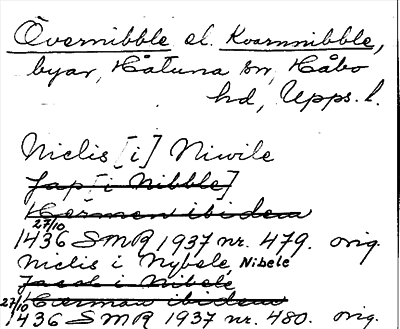 Övernibble el. Kvarnnibble,
byar, Håtuna sn, Håbo
hd, Upps. l.
Niclis [i] Niwile
Jap [i Nibble]
Herman ibidem
27/10
1436 SMR 1937 nr. 479. orig.
Niclis i Nybele, Nibele
Jacob i Nibele
Herman ibidem
27/10
1436 SMR 1937 nr. 480. orig.